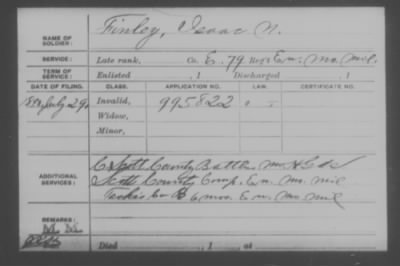 NAME OF SOLDIER: Finley, Isaac N.
SERVICE: Late rank, Co. E. 79 Reg't En. Mo. Mil.
TERM OF SERVICE: Enlisted , 1 Discharged , 1
DATE OF FILING. CLASS. APPLICATION NO. LAW. CERTIFICATE NO.
July 29, Invalid, 995822
Widow,
Minor,
ADDITIONAL SERVICES: Scott County Battln Mo. H Gds
Scott County Comp. En. Mo. Mil
Co B 6 mos. En. Mo Mil
REMARKS:
Died , 1 at